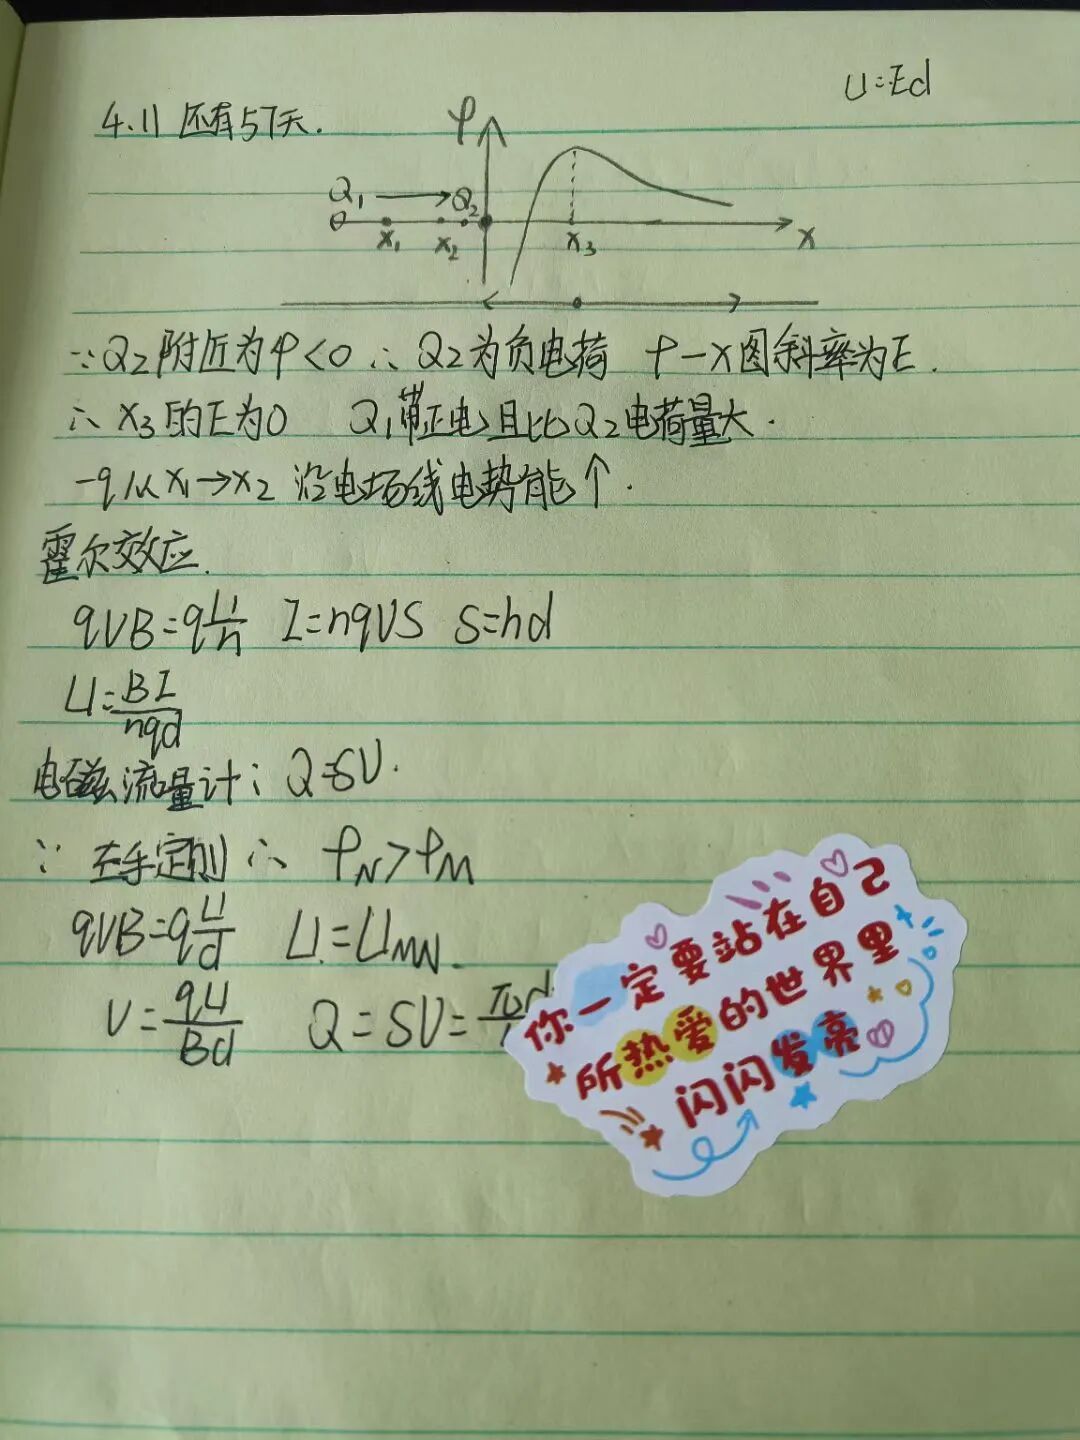 U=Ed
4.11 还有57天.
φ
Q₁ → Q₂
x₁ x₂ x₃ x
∵Q₂附近为φ<0 ∴Q₂为负电荷 φ-x图斜率为E.
∴x₃的E为0 Q₁带正电且比Q₂电荷量大.
-q从x₁→x₂ 沿电场线电势能↑.
霍尔效应.
qvB=q\frac{U}{h} I=nqvS S=hd
U=\frac{BI}{nqd}
电磁流量计: Q=Sv.
∵左手定则 ∴ φ_N>φ_M
qvB=q\frac{U}{d} U=U_{MN}.
v=\frac{qU}{Bd} Q=Sv=
你一定要站在自己
所热爱的世界里
闪闪发亮